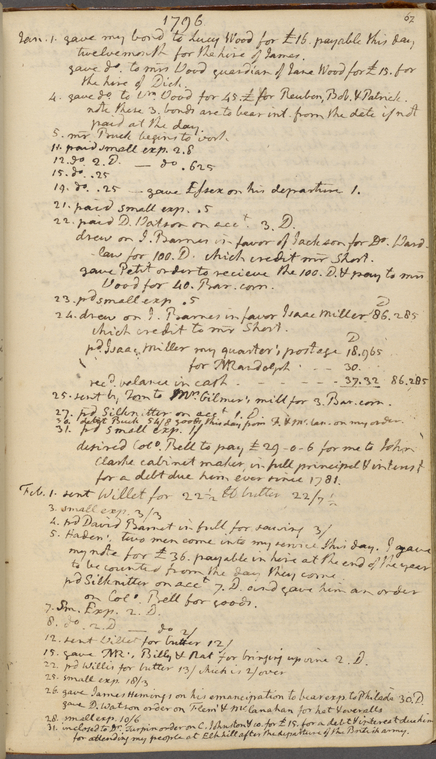 1796
62
Jan. 1. gave my bond to Lucy Wood for £16. payable this day
twelvemonth for the hire of James.
gave do. to mrs Wood guardian of Jane Wood for £15. for
the hire of Dick.
4. gave do to Wm Wood for 45.£ for Reuben, Bob, & Patrick.
note these 3. bonds are to bear int. from the date if not
paid at the day.
5. mr Buck begins to work.
11. paid small exp. 2.8
12. do. 2. D. — do. .625
15. do. .25
19. do. .25 — gave Essex on his departure 1.
21. paid small exp. .5
22. paid D. Watson on acct. 3. D.
drew on J. Barnes in favor of Jackson for Dr. Ward-
law for 100. D. which credit mr Short.
gave Petit order to recieve the 100. D. & pay to mrs
Wood for 40. Bar. corn.
23. pd small exp .5
24. drew on J. Barnes in favor Isaac Miller D 86.285
which credit to mr Short.
pd Isaac Miller my quarter's postage D 18.965
for MRandolph 30.
recd. balance in cash 37.32 86.285
25. sent by Tom to Mr. Gilmer's mill for 3. Bar. corn.
27. pd Silknitter on acct 1. D.
30. debit Buck 54/8 goods this day from F. & McLan. on my order.
31. pd small exp. 1/
desired Colo. Bell to pay £29-0-6 for me to John
Clarke cabinet maker, in full principal & interest
for a debt due him ever since 1781.
Feb. 1. sent Willet for 22 1/2 lb butter 22/
3. small exp. 3/3
4. pd David Barnet in full for sawing 3/
5. Haden's two men come into my service this day. I gave
my note for £36. payable in hire at the end of the year
to be counted from the day they come.
pd Silknitter on acct 7. D. and gave him an order
on Colo. Bell for goods.
7. Sm. Exp. 2. D.
8. do. 2. D — do 2/
12. sent Willet for butter 12/
15. gave Billy & Nat for bringing up wine 2. D.
22. pd Willis for butter 13/ which is 2/ over
25. small exp. 18/3
26. gave James Hemings on his emancipation to bear exp. to Philada 30. D
gave D. Watson order on Flem. & McClanahan for hat & overalls
28. small exp. 10/6
31. inclosed to Dr. Turpin order on C. Johnston & co. for £15. for a debt & interest due him
for attending my people at Elkhill after the departure of the British army.